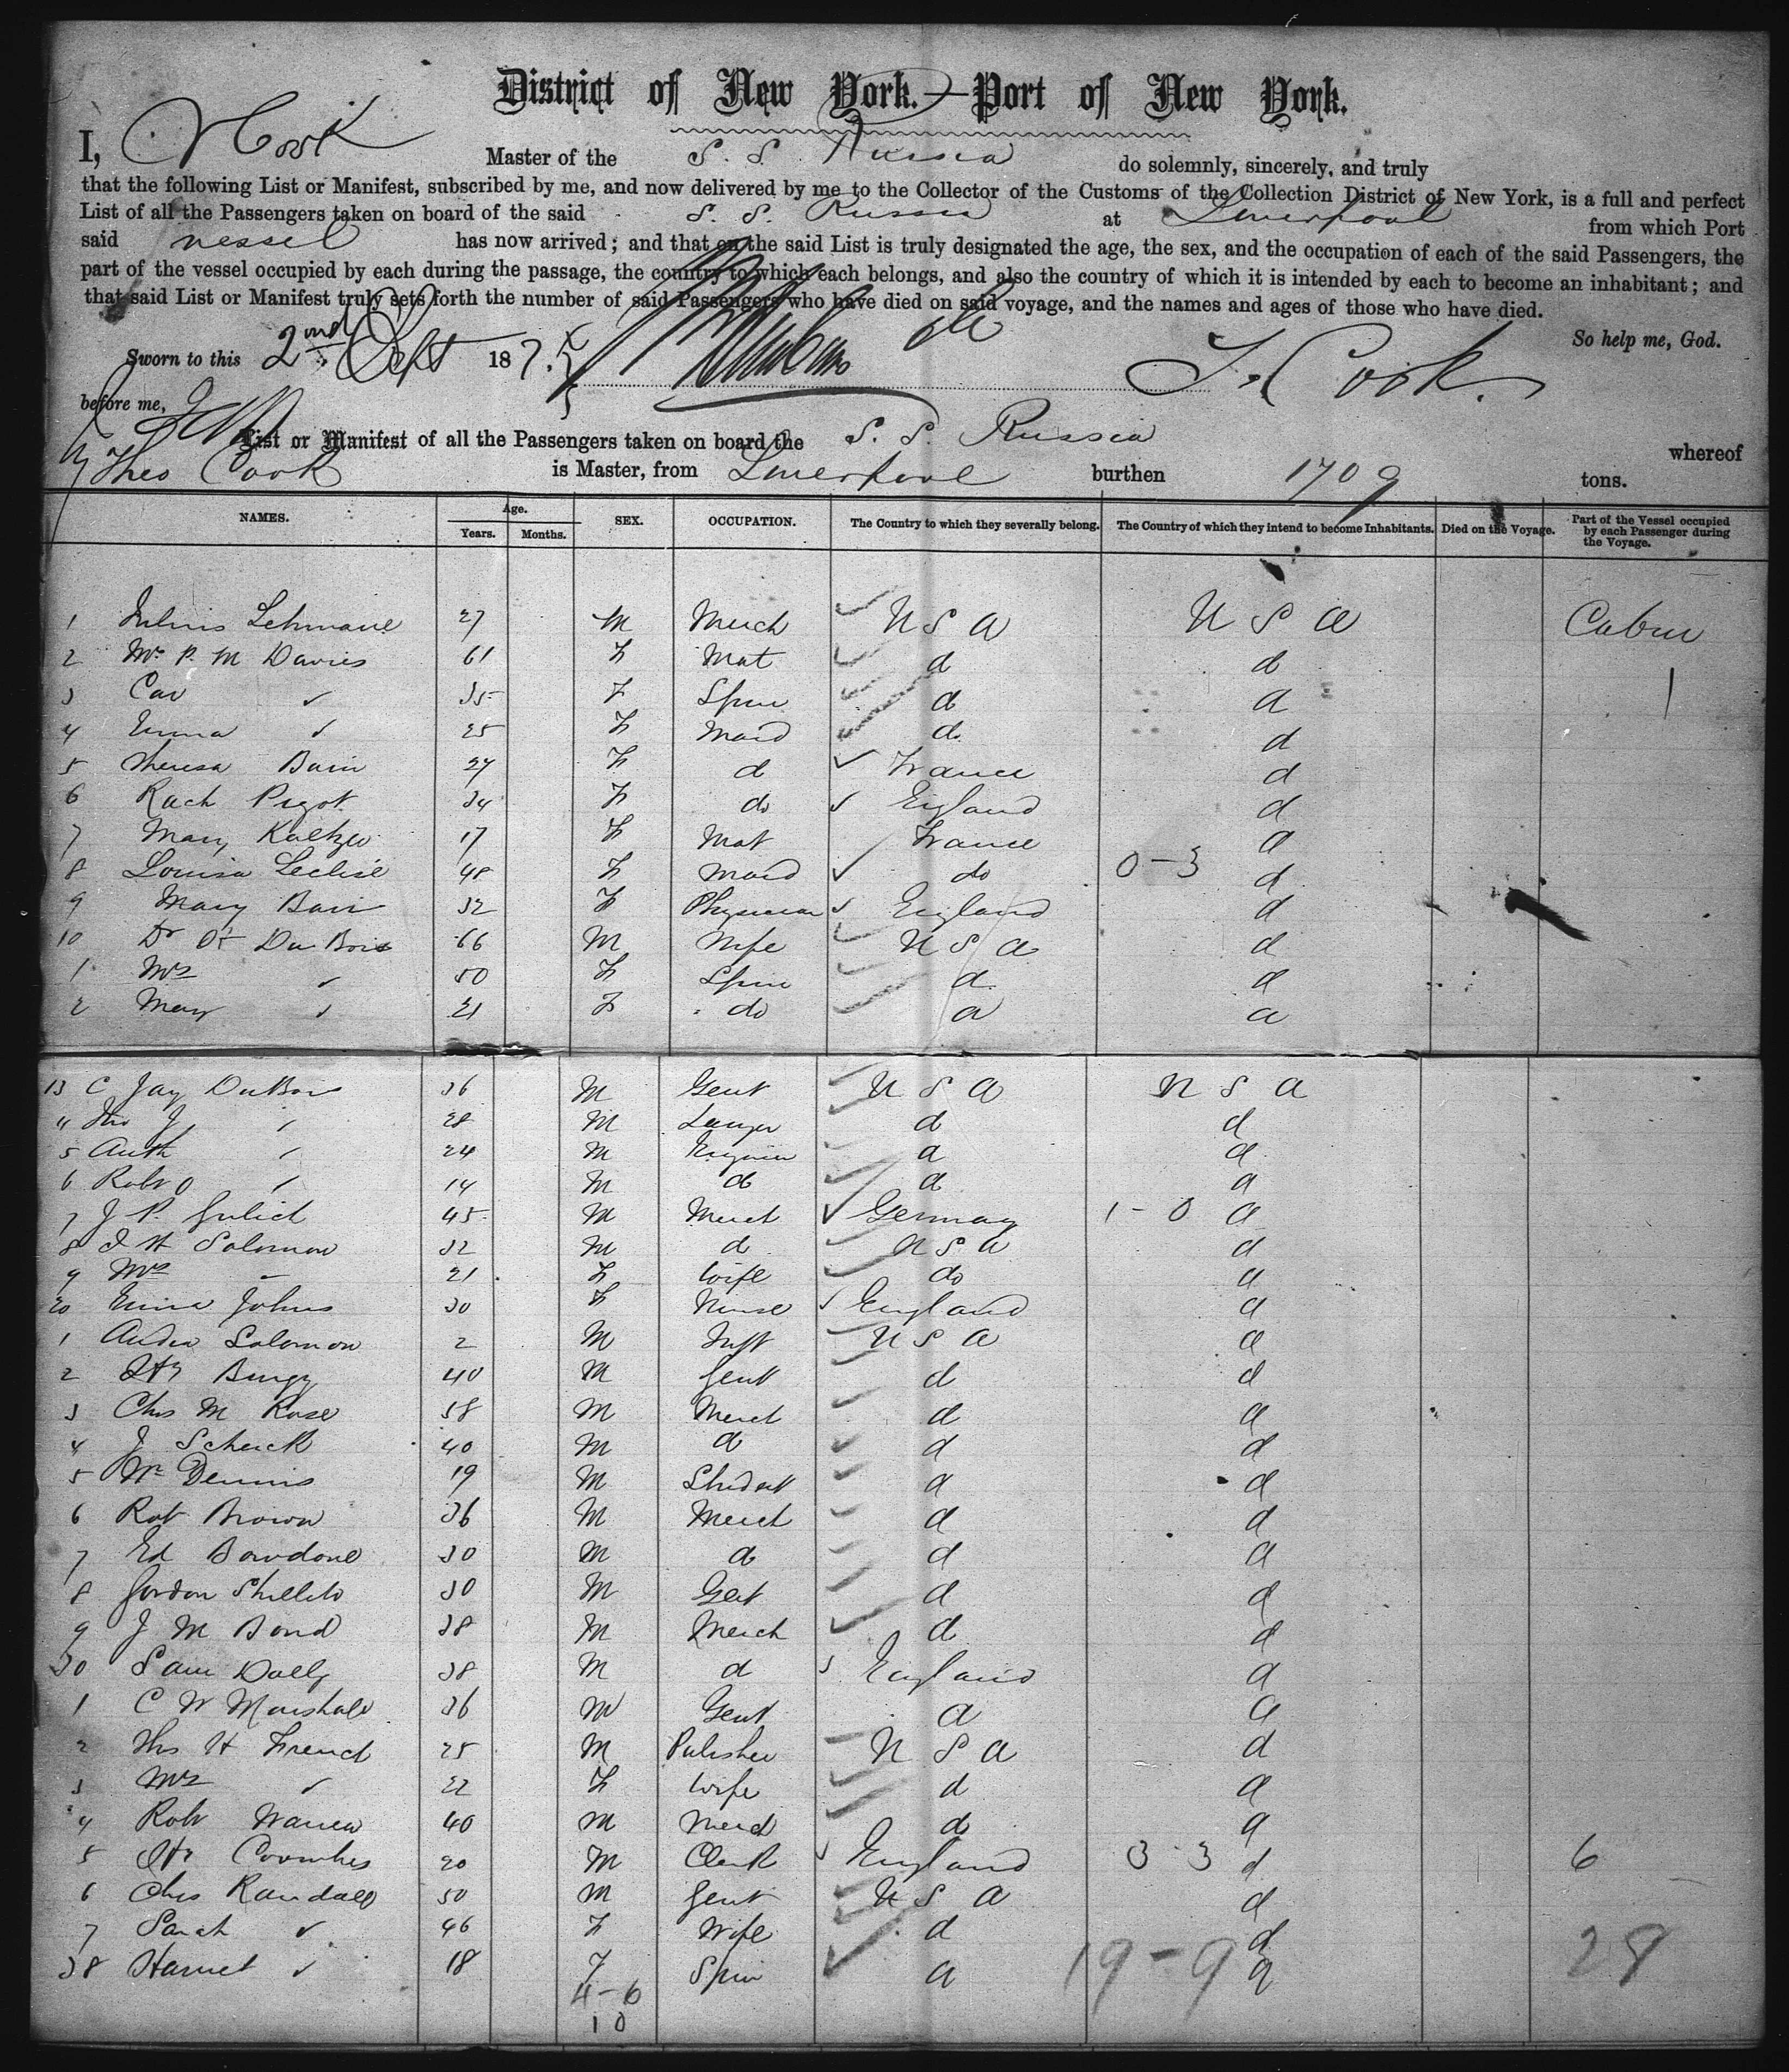 District of New York.—Port of New York.
I, T Cook Master of the S. S. Russia do solemnly, sincerely, and truly
that the following List or Manifest, subscribed by me, and now delivered by me to the Collector of the Customs of the Collection District of New York, is a full and perfect
List of all the Passengers taken on board of the said S. S. Russia at Liverpool from which Port
said vessel has now arrived; and that on the said List is truly designated the age, the sex, and the occupation of each of the said Passengers, the
part of the vessel occupied by each during the passage, the country to which each belongs, and also the country of which it is intended by each to become an inhabitant; and
that said List or Manifest truly sets forth the number of said Passengers who have died on said voyage, and the names and ages of those who have died.
So help me, God.
Sworn to this 2nd Sept 187 T. Cook.
before me,
List or Manifest of all the Passengers taken on board the S. S. Russia whereof
Theo Cook is Master, from Liverpool burthen 1709 tons.
NAMES. Age. Years. Months. SEX. OCCUPATION. The Country to which they severally belong. The Country of which they intend to become Inhabitants. Died on the Voyage. Part of the Vessel occupied by each Passenger during the Voyage.
1 Julius Lehmann 27 M Merch U S A U S A Cabin
2 Mrs P. M Davies 61 F Mat d d
3 Car ✓ 35 F Spin d d 1
4 Emma ✓ 25 F Maid do d
5 Theresa Bain 27 F d France d
6 Rach Pigot 34 F do England d
7 Mary 17 F Mat France d
8 Louisa 48 F Maid do 0-3 d
9 Mary Bari 32 F Physician England d
10 Dr Du Bois 66 M Wife U S A d
1 Mrs ✓ 50 F Spin d d
2 Mary ✓ 21 F do d d
13 C Jay DuBois 36 M Gent U S A U S A
4 J 28 M Lawyer d d
5 Auth 24 M d d
6 Robt O 14 M do d d
7 J P. Gulich 45 M Merch Germany 1-0 d
8 Solomon 32 M d U S A d
9 Mrs 21 F Wife do d
20 Emma Johns 30 F Nurse England d
1 Solomon 2 M Inft U S A d
2 Hy 40 M Gent d d
3 Chs M Rose 58 M Merch d d
4 J Schenck 40 M d d d
5 Wm Dennis 19 M Student d d
6 Rob Brown 36 M Merch d d
7 Ed Bowdone 30 M do d d
8 Gordon Shillito 30 M Gent d d
9 J M Bond 38 M Merch d d
30 Sam Dally 38 M d England d
1 C W Marshall 36 M Gent d d
2 Ths H French 25 M Publisher U S A d
3 Mrs ✓ 22 F Wife d d
4 Robt Warren 40 M Merch do d
5 Hy Coombes 20 M Clerk England 3 3 d 6
6 Chs Randall 50 M Gent U S A d
7 Sarah ✓ 46 F Wife d d
38 Harriet ✓ 18 F Spin d 19-9 d 28
4-6
10